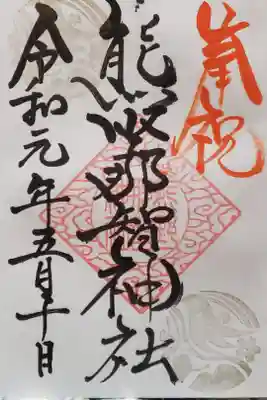 奉祝
熊野那智神社
令和元年五月十日